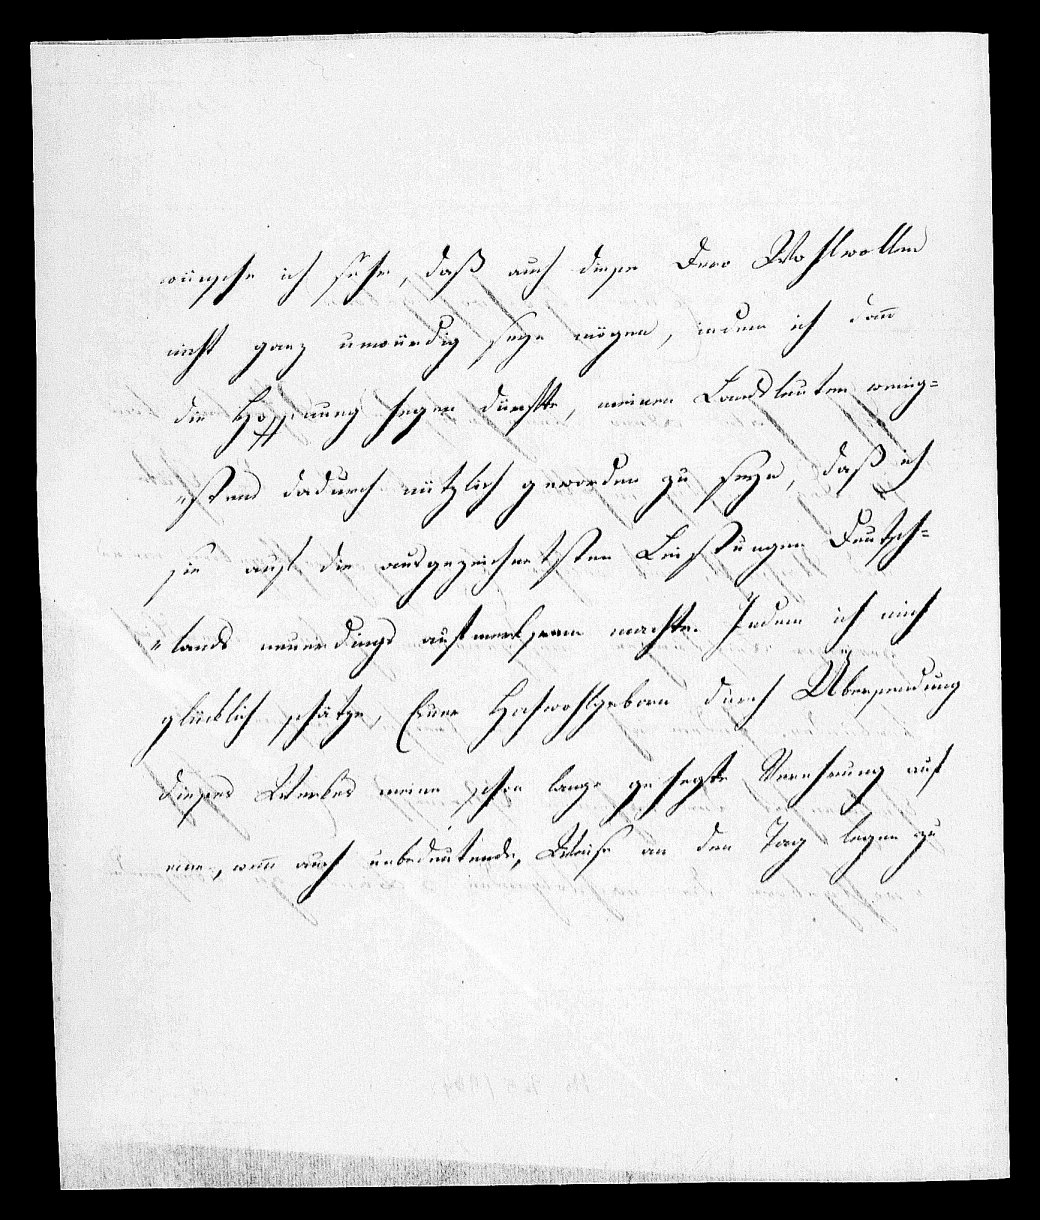 wünsche ich sehr, daß auch diese Dero Wohlwollen
nicht ganz unwürdig seyn mögen, indem ich dann
die Hoffnung hegen dürfte, meinen Landsleuten wenig=
"stens dadurch nützlich geworden zu seyn, daß ich
sie auf die ausgezeichnetsten Leistungen Deutsch=
"lands neuerdings aufmerksam machte. Indem ich mich
glücklich schätze, Euer Hochwohlgeboren durch Übersendung
dieses Werkes meine schon lange gehegte Verehrung auf
eine, wenn auch unbedeutende, Weise an den Tag legen zu